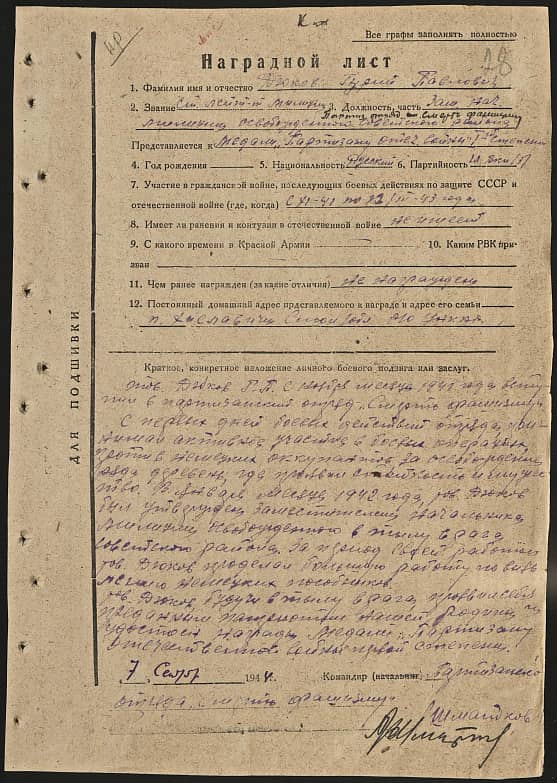 Все графы заполнять полностью
Наградной лист
1. Фамилия имя и отчество Дюков Павлович
2. Звание милиции 3. Должность, часть Зам. Нач.
милиции освобожденного Советского района
Партиз. отряд „Смерть фашизму“
Представляется к Медали „Партизану отеч. войны“ I степени
4. Год рождения 5. Национальность Русский 6. Партийность
7. Участие в гражданской войне, последующих боевых действиях по защите СССР и
отечественной войне (где, когда) с XI-41 по 43 года
8. Имеет ли ранения и контузии в отечественной войне не имеет
9. С какого времени в Красной Армии 10. Каким РВК при-
зван
11. Чем ранее награжден (за какие отличия) не награжден
12. Постоянный домашний адрес представляемого к награде и адрес его семьи
п. Хиславичи
ДЛЯ ПОДШИВКИ
Краткое, конкретное изложение личного боевого подвига или заслуг.
тов. Дюков с ноября месяца 1941 года всту-
пил в партизанский отряд „Смерть фашизму“
С первых дней боевых действий отряда, при-
нимал активное участие в боевых операциях
против немецких оккупантов за освобождение
деревень, где проявил стойкость и мужес-
тво. В январе месяце 1942 года, тов. Дюков
был утвержден заместителем начальника
милиции освобожденного в тылу врага
Советского района. За период своей работы
тов. Дюков проделал большую работу по выяв-
лению немецких пособников.
тов. Дюков, будучи в тылу врага, проявил себя
преданным патриотом нашей родины,
удостоен награды медали „Партизану
отечественной войны“ первой степени.
7 Сентяб 1944. Командир (начальник) Партизанско
отряда „Смерть фашизму“
Шмат­ков